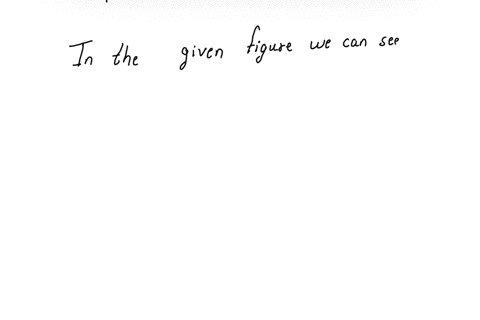 In the given figure we can see